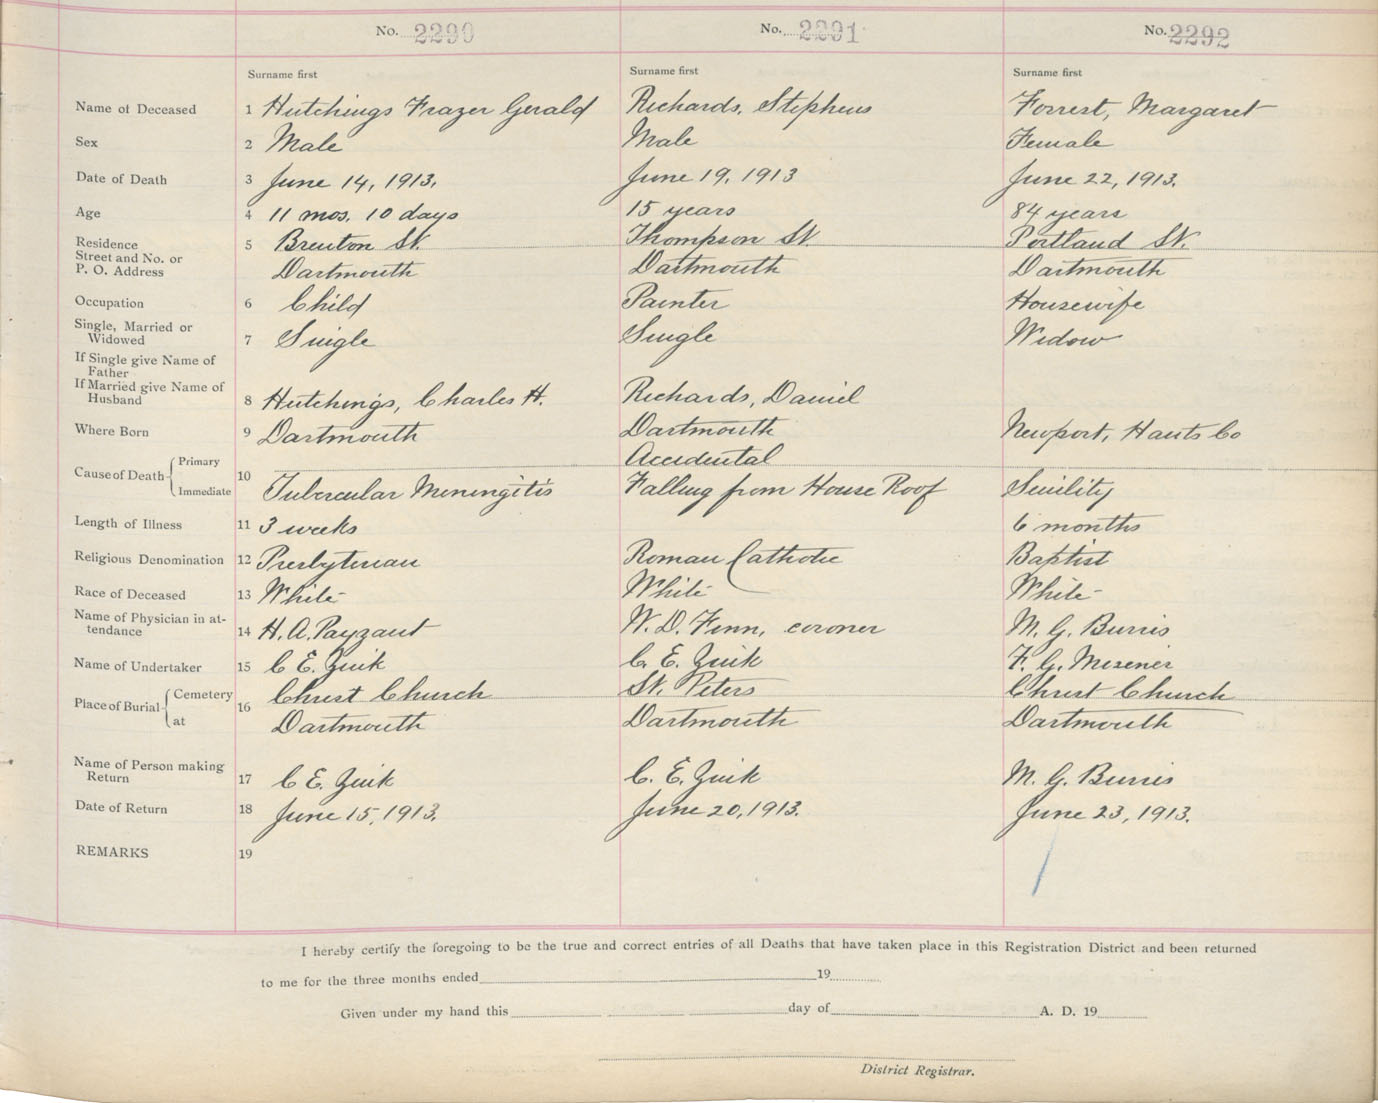 No. 2290 No. 2291 No. 2292
Surname first Surname first Surname first
Name of Deceased 1 Hutchings Frazer Gerald Richards, Stephens Forrest, Margaret
Sex 2 Male Male Female
Date of Death 3 June 14, 1913. June 19, 1913 June 22, 1913.
Age 4 11 mos. 10 days 15 years 84 years
Residence 5 Brenton St. Thompson St. Portland St.
Street and No. or
P. O. Address Dartmouth Dartmouth Dartmouth
Occupation 6 Child Painter Housewife
Single, Married or
Widowed 7 Single Single Widow
If Single give Name of
Father
If Married give Name of
Husband 8 Hutchings, Charles H. Richards, Daniel
Where Born 9 Dartmouth Dartmouth Newport, Hants Co
Cause of Death Primary 10 Accidental
Immediate Tubercular Meningitis Falling from House Roof Senility
Length of Illness 11 3 weeks 6 months
Religious Denomination 12 Presbyterian Roman Catholic Baptist
Race of Deceased 13 White White White
Name of Physician in at-
tendance 14 H. A. Payzant W. D. Finn, coroner M. G. Burris
Name of Undertaker 15 C E. Zuik C. E. Zuik F. G. Mesener
Place of Burial Cemetery 16 Christ Church St. Peters Christ Church
at Dartmouth Dartmouth Dartmouth
Name of Person making
Return 17 C E. Zuik C. E. Zuik M. G. Burris
Date of Return 18 June 15, 1913. June 20, 1913. June 23, 1913.
REMARKS 19
I hereby certify the foregoing to be the true and correct entries of all Deaths that have taken place in this Registration District and been returned
to me for the three months ended 19
Given under my hand this day of A. D. 19
District Registrar.